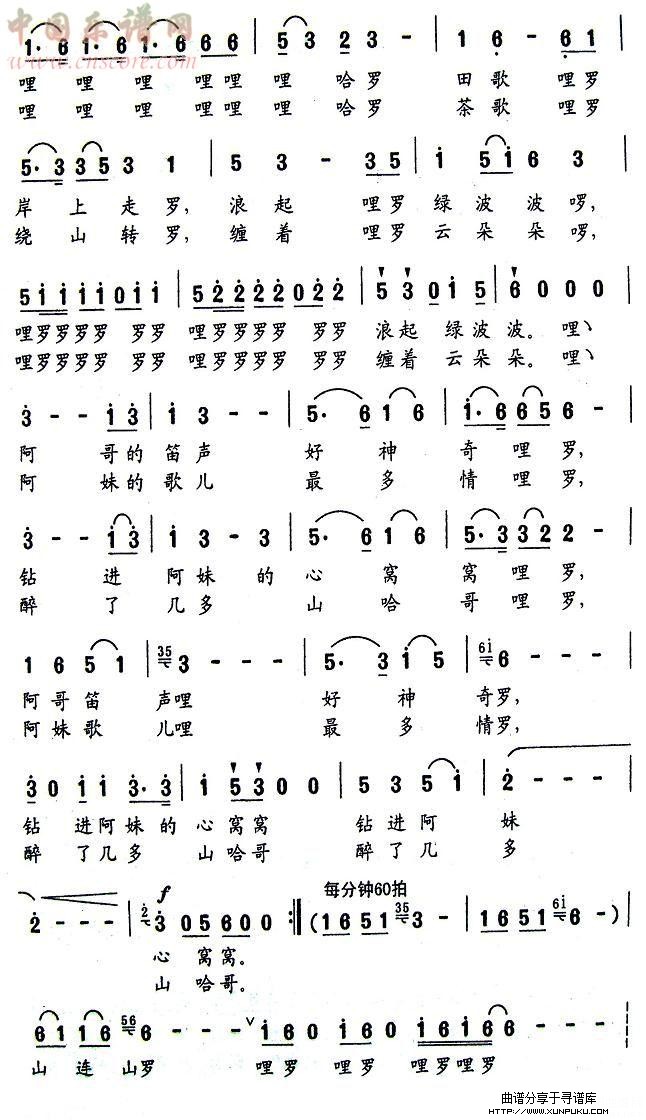 中国乐谱网
www.cnscore.com
1·6 1·6 1·6 6 6 6 | 5 3 2 3 - | 1 6 - 6 1
哩 哩 哩 哩哩 哩 哈罗 田歌 哩罗
哩 哩 哩 哩哩 哩 哈罗 茶歌 哩罗
5·3 3 5 3 1 | 5 3 - 3 5 | i 5 i 6 3
岸 上 走 罗, 浪 起 哩罗 绿 波 波 啰,
绕 山 转 罗, 缠 着 哩罗 云 朵 朵 啰,
5 i i i i i 0 i i | 5 2 2 2 2 2 0 2 2 | 5 3 0 i 5 | 6 0 0 0
哩罗罗罗罗 罗罗 哩罗罗罗罗 罗罗 浪起 绿波 波。 哩
哩罗罗罗罗 罗罗 哩罗罗罗罗 罗罗 缠着 云朵 朵。 哩
3 - - i 3 | i 3 - - | 5· 6 i 6 | i·6 6 5 6 -
阿 哥的 笛声 好 神 奇 哩 罗,
阿 妹的 歌儿 最 多 情 哩 罗,
3 - - i 3 | i 3 - 3 | 5· 6 i 6 | 5·3 3 2 2 -
钻 进 阿妹 的 心 窝 窝 哩 罗,
醉 了 几多 山 哈 哥 哩 罗,
1 6 5 1 | 35 3 - - - | 5· 3 i 5 | 6i 6 - - -
阿哥笛 声哩 好 神 奇罗,
阿妹歌 儿哩 最 多 情罗,
3 0 i i 3·3 | i 5 3 0 0 | 5 3 5 i | 2 - - -
钻 进阿妹 的 心窝窝 钻进阿 妹
醉 了几多 山哈哥 醉了几 多
f 每分钟60拍
2 - - - | 2 3 0 5 6 0 0 :‖ (1 6 5 1 35 3 - | 1 6 5 1 6i 6 -)
心 窝窝。
山 哈哥。
6 1 1 6 56 6 - - - ∨ i 6 0 i 6 0 i 6 i 6 6 - - -
山 连 山罗 哩罗 哩罗 哩罗哩罗
曲谱分享于寻谱库
HTTP://WWW.XUNPUKU.COM